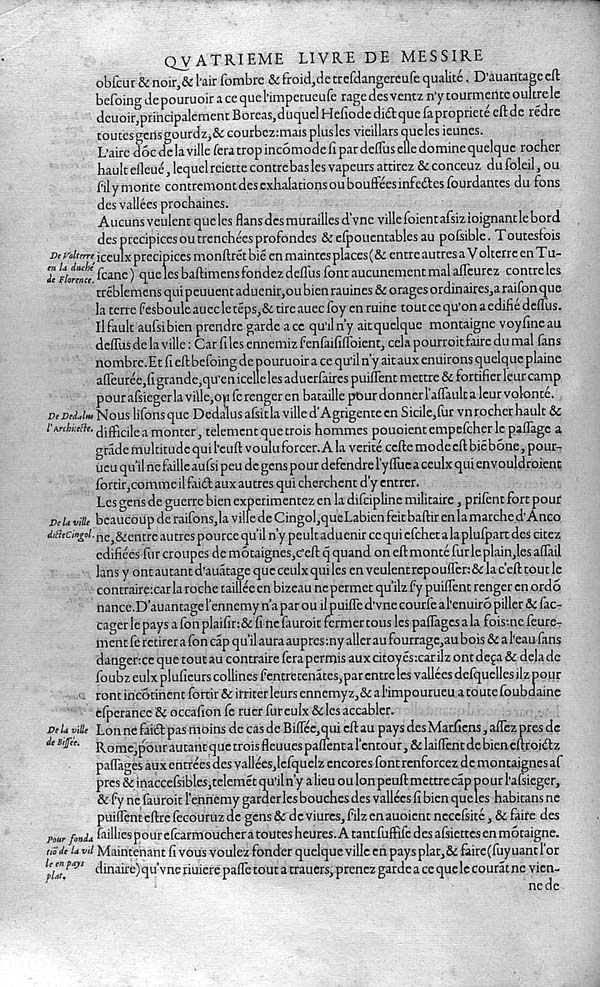 QVATRIEME LIVRE DE MESSIRE
obſcur & noir, & l'air ſombre & froid, de treſdangereuſe qualité. D'auantage eſt
beſoing de pouruoir a ce que l'impetueuſe rage des ventz n'y tourmente oultre le
deuoir, principalement Boreas, duquel Heſiode dict que ſa proprieté eſt de rẽdre
toutes gens gourdz, & courbez: mais plus les vieillars que les ieunes.
L'aire dõc de la ville ſera trop incõmode ſi par deſſus elle domine quelque rocher
hault eſleué, lequel reiette contrebas les vapeurs attirez & conceuz du ſoleil, ou
ſ'il y monte contremont des exhalations ou bouffées infectes ſourdantes du fons
des vallées prochaines.
Aucuns veulent que les flans des murailles d'vne ville ſoient aſsiz ioignant le bord
des precipices ou trenchées profondes & eſpouentables au poſsible. Touteſfois
De Volterre
en la duché
de Florence.
iceulx precipices monſtrẽt biẽ en maintes places (& entre autres a Volterre en Tu-
ſcane) que les baſtimens fondez deſſus ſont aucunement mal aſſeurez contre les
trẽblemens qui peuuent aduenir, ou bien rauines & orages ordinaires, a raiſon que
la terre ſ'esboule auec le tẽps, & tire auec ſoy en ruine tout ce qu'on a edifié deſſus.
Il fault auſsi bien prendre garde a ce qu'il n'y ait quelque montaigne voyſine au
deſſus de la ville: Car ſi les ennemiz ſ'en ſaiſiſſoient, cela pourroit faire du mal ſans
nombre. Et ſi eſt beſoing de pouruoir a ce qu'il n'y ait aux enuirons quelque plaine
aſſeurée, ſi grande, qu'en icelle les aduerſaires puiſſent mettre & fortifier leur camp
pour aſsieger la ville, ou ſe renger en bataille pour donner l'aſſault a leur volonté.
De Dedalus
l'Architecte.
Nous liſons que Dedalus aſsit la ville d'Agrigente en Sicile, ſur vn rocher hault &
difficile a monter, telement que trois hommes pouoient empeſcher le paſſage a
grãde multitude qui l'euſt voulu forcer. A la verité ceſte mode eſt biẽ bõne, pour-
ueu qu'il ne faille auſsi peu de gens pour defendre l'yſſue a ceulx qui en vouldroient
ſortir, comme il faict aux autres qui cherchent d'y entrer.
De la ville
dicte Cingol.
Les gens de guerre bien experimentez en la diſcipline militaire, priſent fort pour
beaucoup de raiſons, la ville de Cingol, que Labien feit baſtir en la marche d'Anco
ne, & entre autres pource qu'il n'y peult aduenir ce qui eſchet a la pluſpart des citez
edifiées ſur croupes de mõtaignes, c'eſt q̃ quand on eſt monté ſur le plain, les aſſail
lans y ont autant d'auãtage que ceulx qui les en veulent repouſſer: & la c'eſt tout le
contraire: car la roche taillée en bizeau ne permet qu'ilz ſ'y puiſſent renger en ordõ
nance. D'auantage l'ennemy n'a par ou il puiſſe d'vne courſe a l'enuirõ piller & ſac-
cager le pays a ſon plaiſir: & ſi ne ſauroit fermer tous les paſſages a la fois: ne ſeure-
ment ſe retirer a ſon cãp qu'il aura aupres: ny aller au fourrage, au bois & a l'eau ſans
danger: ce que tout au contraire ſera permis aux citoyẽs: car ilz ont deça & dela de
ſoubz eulx pluſieurs collines ſ'entretenãtes, par entre les vallées deſquelles ilz pour
ront incõtinent ſortir & irriter leurs ennemyz, & a l'impourueu a toute ſoubdaine
eſperance & occaſion ſe ruer ſur eulx & les accabler.
De la ville
de Biſſée.
Lon ne faict pas moins de cas de Biſſée, qui eſt au pays des Marſiens, aſſez pres de
Rome, pour autant que trois fleuues paſſent a l'entour, & laiſſent de bien eſtroictz
paſſages aux entrées des vallées, leſquelz encores ſont renforcez de montaignes aſ
pres & inacceſsibles, telemẽt qu'il n'y a lieu ou lon peuſt mettre cãp pour l'aſsieger,
& ſ'y ne ſauroit l'ennemy garder les bouches des vallées ſi bien que les habitans ne
puiſſent eſtre ſecouruz de gens & de viures, ſ'ilz en auoient neceſsité, & faire des
ſaillies pour eſcarmoucher a toutes heures. A tant ſuffiſe des aſsiettes en mõtaigne.
Pour fonda
tiõ de la vil
le en pays
plat.
Maintenant ſi vous voulez fonder quelque ville en pays plat, & faire (ſuyuant l'or
dinaire) qu'vne riuiere paſſe tout a trauers, prenez garde a ce que le courãt ne vien-
ne de